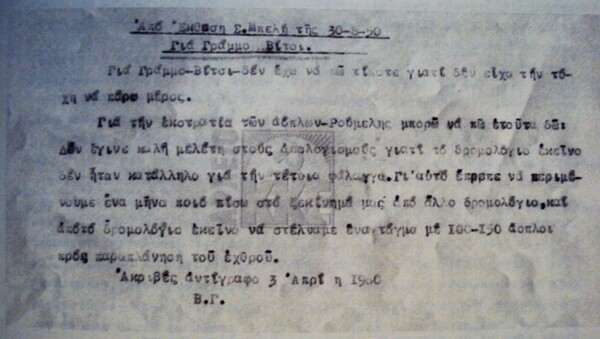 Ἀπό Ἔκθεση Σ.Μπελή τῆς 30-8-50
Γιά Γράμμο Βίτσι.
Γιά Γράμμο-Βίτσι-δέν ἔχω νά πῶ τίποτε γιατί δέν εἶχα τήν τύ-
χη νά πάρω μέρος.
Γιά τήν ἐκστρατία τῶν ἀόπλων-Ρούμελης μπορῶ νά πῶ ἐτοῦτα δῶ:
Δέν ἔγινε καλή μελέτη στούς ὑπολογισμούς γιατί τό δρομολόγιο ἐκεῖνο
δέν ἦταν κατάλληλο γιά τήν τέτοια φάλαγγα.Γι'αὐτό ἔπρεπε νά περιμέ-
νουμε ἕνα μῆνα ποιό πίσω στό ξεκίνημά μας ἀπό ἄλλο δρομολόγιο,καί
ἀπότό δρομολόγιο ἐκεῖνο νά στέλναμε ἕνα τάγμα μέ 100-150 ἄοπλοι
πρός παραπλάνηση τοῦ ἐχθροῦ.
Ἀκριβές ἀντίγραφο 3 Ἀπρί η 1960
Β.Γ.